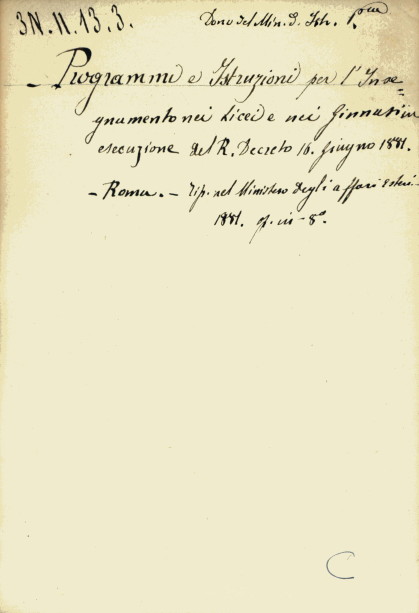 3N.II.13.3.
Dono del Min. d. Istr. P.ca
- Programmi e Istruzioni per l'Inse=
gnamento nei Licei e nei Ginnasi in
esecuzione del R. Decreto 16. Giugno 1881.
- Roma. - Tip. nel Ministero degli affari Esteri.
1881. op. in-8°.
C